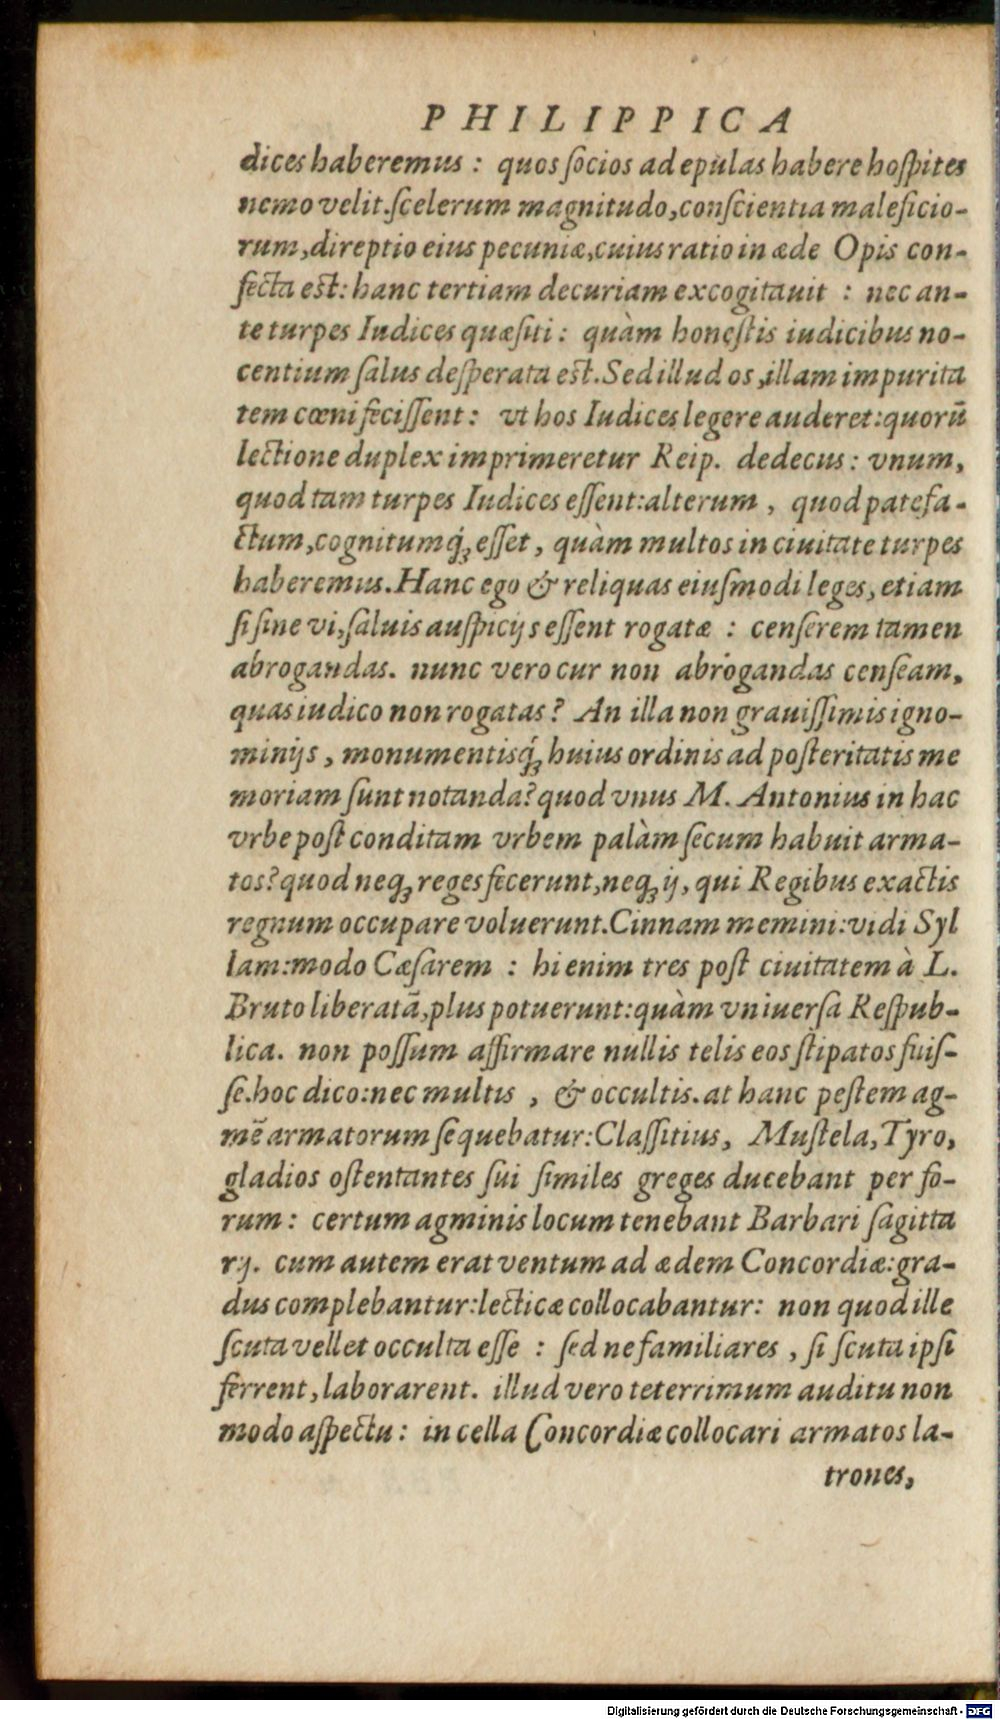 PHILIPPICA
dices haberemus : quos ſocios ad epulas habere hoſpites
nemo velit.ſcelerum magnitudo,conſcientia maleficio-
rum,direptio eius pecuniæ,cuius ratio in æde Opis con-
fecta est: hanc tertiam decuriam excogitauit : nec an-
te turpes Iudices quæſiti : quàm honeſtis iudicibus no-
centium ſalus deſperata est.Sed illud os,illam impurita
tem cœni feciſſent : vt hos Iudices legere auderet:quorū
lectione duplex imprimeretur Reip. dedecus: vnum,
quod tam turpes Iudices eſſent:alterum , quod patefa-
ctum,cognitumq́ꝫ eſſet, quàm multos in ciuitate turpes
haberemus.Hanc ego & reliquas eiuſmodi leges, etiam
ſi ſine vi,ſaluis auſpicijs eſſent rogatæ : cenſerem tamen
abrogandas. nunc vero cur non abrogandas cenſeam,
quas iudico non rogatas? An illa non grauiſſimis igno-
minijs , monumentisq́ꝫ huius ordinis ad poſteritatis me
moriam ſunt notanda? quod vnus M. Antonius in hac
vrbe poſt conditam vrbem palàm ſecum habuit arma-
tos? quod neqꝫ reges fecerunt,neqꝫ ij, qui Regibus exactis
regnum occupare voluerunt.Cinnam memini:vidi Syl
lam:modo Cæſarem : hi enim tres poſt ciuitatem à L.
Bruto liberatā,plus potuerunt:quàm vniuerſa Reſpub-
lica. non poſſum affirmare nullis telis eos ſtipatos fuiſ-
ſe.hoc dico:nec multis , & occultis.at hanc peſtem ag-
mē armatorum ſequebatur:Claſſitius, Muſtela,Tyro,
gladios oſtentantes ſui ſimiles greges ducebant per fo-
rum : certum agminis locum tenebant Barbari ſagitta
rij. cum autem erat ventum ad ædem Concordiæ:gra-
dus complebantur:lecticæ collocabantur: non quod ille
ſcuta vellet occulta eſſe : ſed ne familiares , ſi ſcuta ipſi
ferrent,laborarent. illud vero teterrimum auditu non
modo aſpectu : in cella Concordiæ collocari armatos la-
trones,
Digitalisierung gefördert durch die Deutsche Forschungsgemeinschaft - DFG